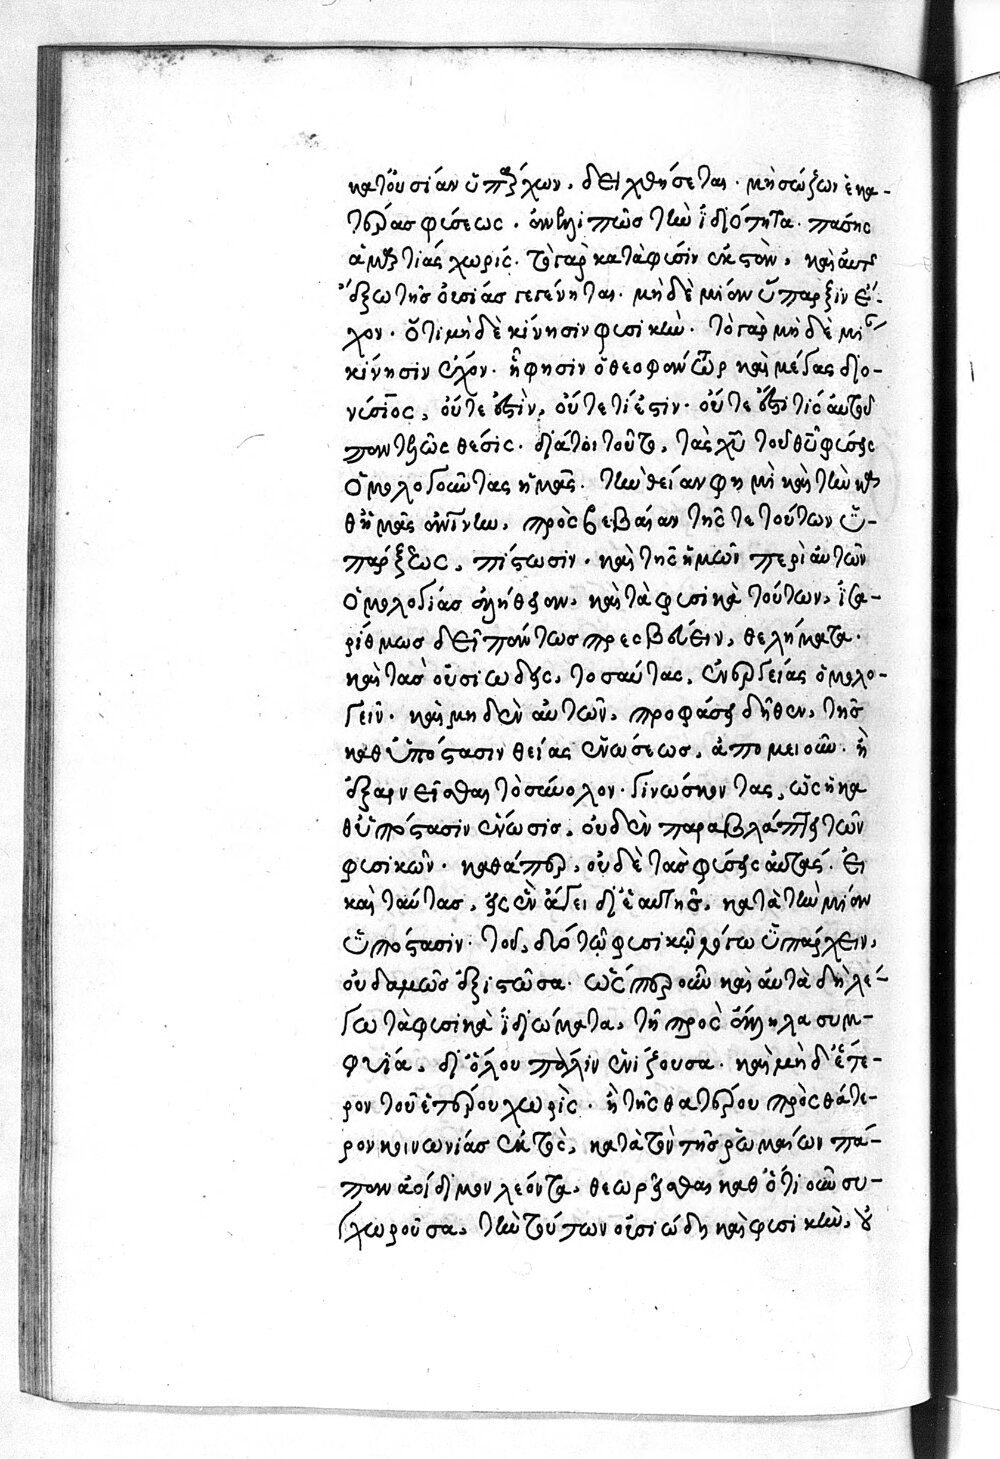 κατ' οὐσίαν ὑπάρχων, δειχθήσεται· μὴ σώζων ἑκα-
τέρας φύσεως, ἀνελλιπῶς τὴν ἰδιότητα· πάσης
ἁμαρτίας χωρίς· τὸ γὰρ κατὰ φύσιν ἐκστὰν, καὶ αὐτῆς
ἔξω τῆς οὐσίας γεγένηται· μηδεμίαν ὕπαρξιν ἔ-
χον· ὅτι μηδὲ κίνησιν φυσικὴν· τὸ γὰρ μηδεμίαν
κίνησιν ἔχον· ᾗ φησὶν ὁ θεοφάντωρ καὶ μέγας διο-
νύσιος, οὔτε ἐστὶν, οὔτε τί ἐστιν· οὔτε ἐστί τις αὐτοῦ
παντελῶς θέσις· διάτοι τοῦτο, τὰς χῦ τοῦ θῦ φύσεις
ὁμολογοῦντας ἡμᾶς· τὴν θείαν φημὶ καὶ τὴν καθ'
ἡμᾶς ἀνίνην, πρὸς βεβαίαν τῆς τε τούτων ὑ-
πάρξεως, πίστωσιν· καὶ τῆς ἡμῶν περὶ αὐτῶν
ὁμολογίας ἀλήθειαν, καὶ τὰ φυσικὰ τούτων, ἰσα-
ρίθμως δεῖ πάντως πρεσβεύειν, θελήματα·
καὶ τὰς οὐσιώδεις, τοσαύτας, ἐνεργείας ὁμολο-
γεῖν· καὶ μηδὲν αὐτῶν, προφάσει δῆθεν, τῆς
καθ' ὑπόστασιν θείας ἑνώσεως, ἀπομειοῦν· ἢ
ἐξαρνεῖσθαι τὸ σύνολον· γινώσκοντας, ὡς ἡ κα
θ' ὑπόστασιν ἕνωσις, οὐδὲν παραβλάπτει τῶν
φυσικῶν· καθάπερ, οὐδὲ τὰς φύσεις αὐτάς· εἰ
καὶ ταύτας, εἰς ἓν ἄγει δι' ἑαυτῆς, κατὰ τὴν μίαν
ὑπόστασιν· τοῦ, δύο τῷ φυσικῷ λόγω ὑπάρχειν,
οὐδαμῶς ἐξιστῶσα· ὥσπερ οὖν καὶ αὐτὰ δὴ λέ-
γω τὰ φυσικὰ ἰδιώματα, τῇ πρὸς ἄλληλα συμ-
φυΐα, δι' ὅλου πάλιν ἑνίζουσα· καὶ μηδ' ἕτε-
ρον τοῦ ἑτέρου χωρὶς· ἢ τῆς θατέρου πρὸς θάτε-
ρον κοινωνίας ἐκτὸς, κατὰ τὸν τῆς ῥωμαίων πά-
παν ἀοίδιμον λέοντα, θεωρεῖσθαι καθ' ὁτιοῦν συ-
γχωροῦσα, τὴν τούτων οὐσιώδη καὶ φυσικὴν, οὐ